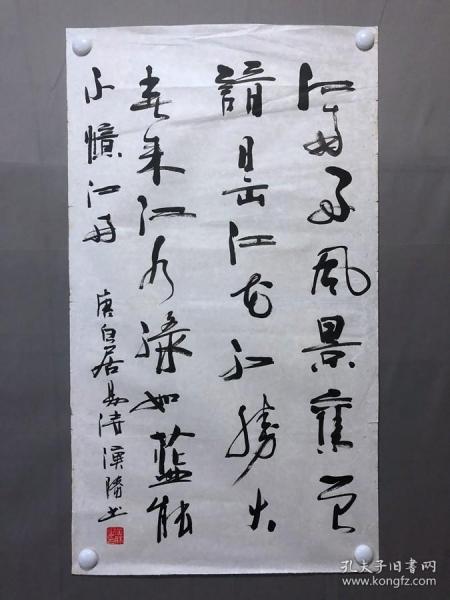 江南好风景舊曾
諳日出江花红勝火
春来江水绿如藍能
不憶江南
唐白居易诗漢勝书
孔夫子旧书网
www.kongfz.com